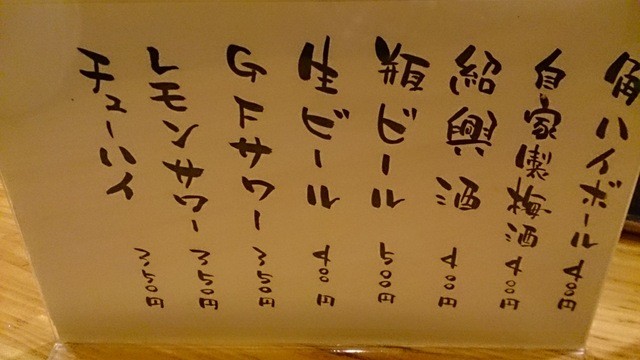 角ハイボール 400円
自家製梅酒 400円
紹興酒 400円
瓶ビール 500円
生ビール 400円
GFサワー 350円
レモンサワー 350円
チューハイ 350円